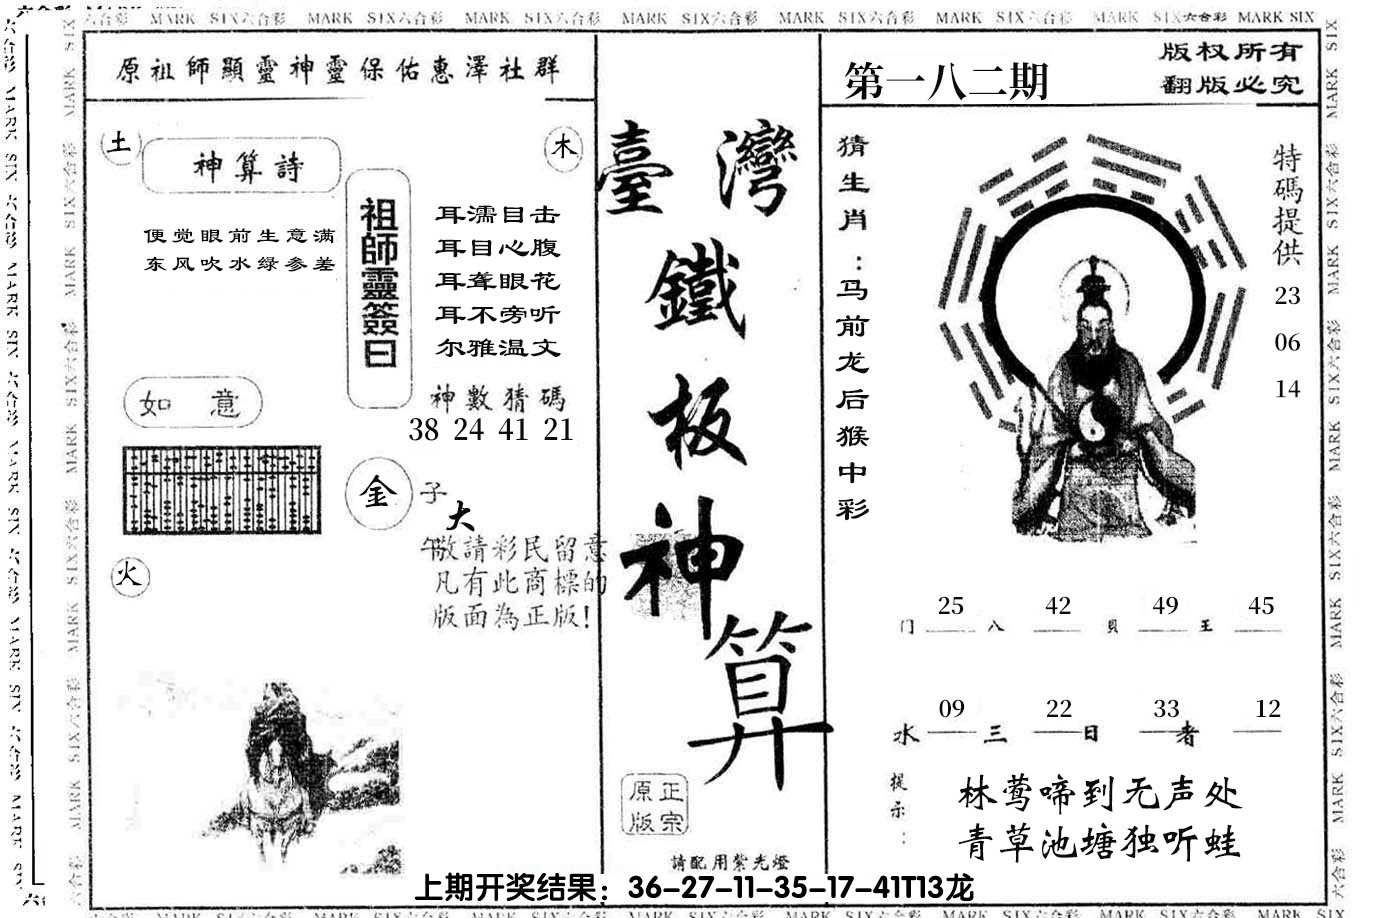 MARK SIX六合彩 MARK SIX六合彩 MARK SIX六合彩 MARK SIX六合彩 MARK SIX六合彩 MARK SIX六合彩 MARK SIX六合彩 MARK SIX
原祖師顯靈神靈保佑惠澤社群
土
木
神算詩
便觉眼前生意满
东风吹水绿参差
祖師靈簽曰
耳濡目击
耳目心腹
耳聋眼花
耳不旁听
尔雅温文
如意
神數猜碼
38 24 41 21
金
子
大
午
敬請彩民留意
凡有此商標的
版面為正版!
火
臺灣
鐵
板
神
算
正宗
原版
請配用紫光燈
第一八二期
版权所有
翻版必究
猜生肖：马前龙后猴中彩
特碼提供
23
06
14
25 42 49 45
门 八 貝 王
09 22 33 12
水 三 日 者
提示：
林莺啼到无声处
青草池塘独听蛙
上期开奖结果：36-27-11-35-17-41T13龙